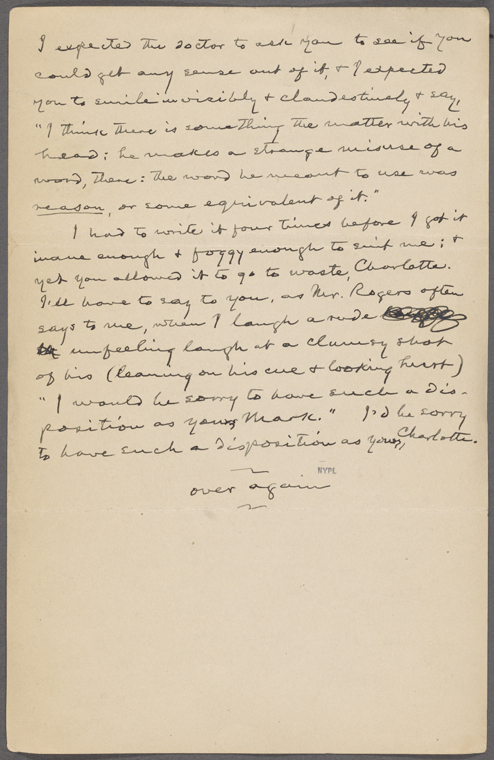 I expected the doctor to ask you to see if you
could get any sense out of it, & I expected
you to smile invisibly & clandestinely & say,
"I think there is something the matter with his
head: he makes a strange misuse of a
word, there: the word he meant to use was
reason, or some equivalent of it."
I had to write it four times before I got it
inane enough & foggy enough to suit me; &
yet you allowed it to go to waste, Charlotte.
I'll have to say to you, as Mr. Rogers often
says to me, when I laugh a rude
unfeeling laugh at a clumsy shot
of his (leaning on his cue & looking hurt)
"I would be sorry to have such a dis-
position as yours Mark." I'd be sorry
to have such a disposition as yours, Charlotte.
NYPL
over again